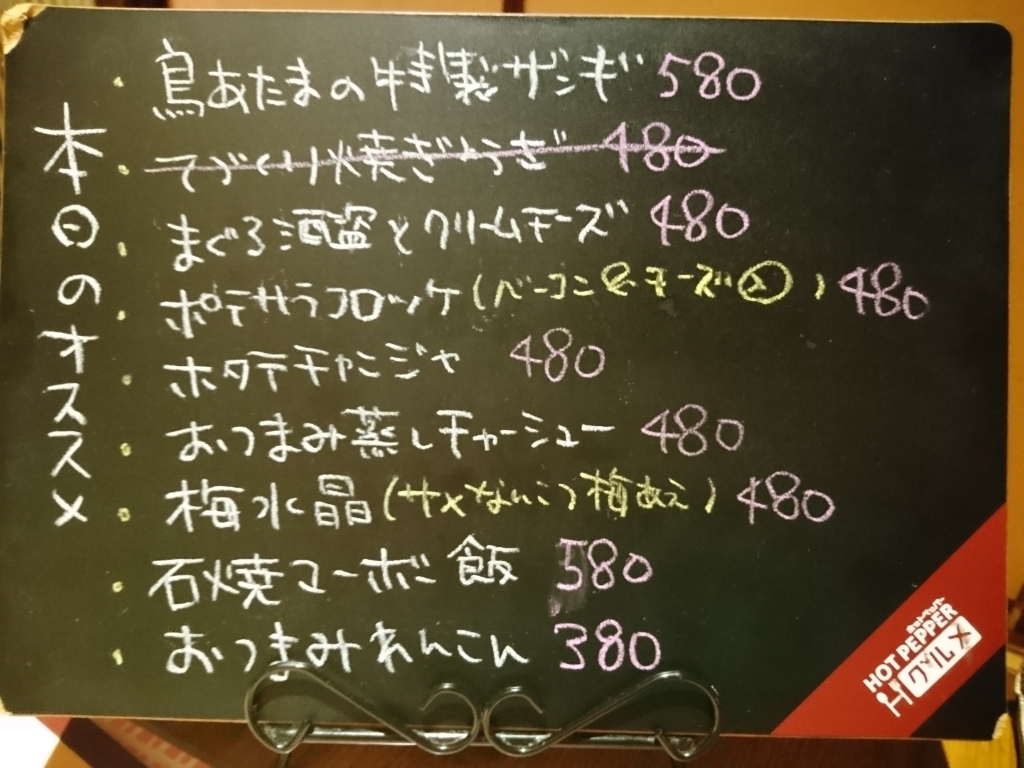 本日のオススメ
・鳥あたまの特製ザンギ 580
・てづくり焼ぎょうざ 480
・まぐろ酒盗とクリームチーズ 480
・ポテサラコロッケ(ベーコン&チーズ入) 480
・ホタテチャンジャ 480
・おつまみ蒸しチャーシュー 480
・梅水晶(サメなんこつ梅あえ) 480
・石焼マーボー飯 580
・おつまみれんこん 380
ホットペッパー
HOT PEPPER
グルメ